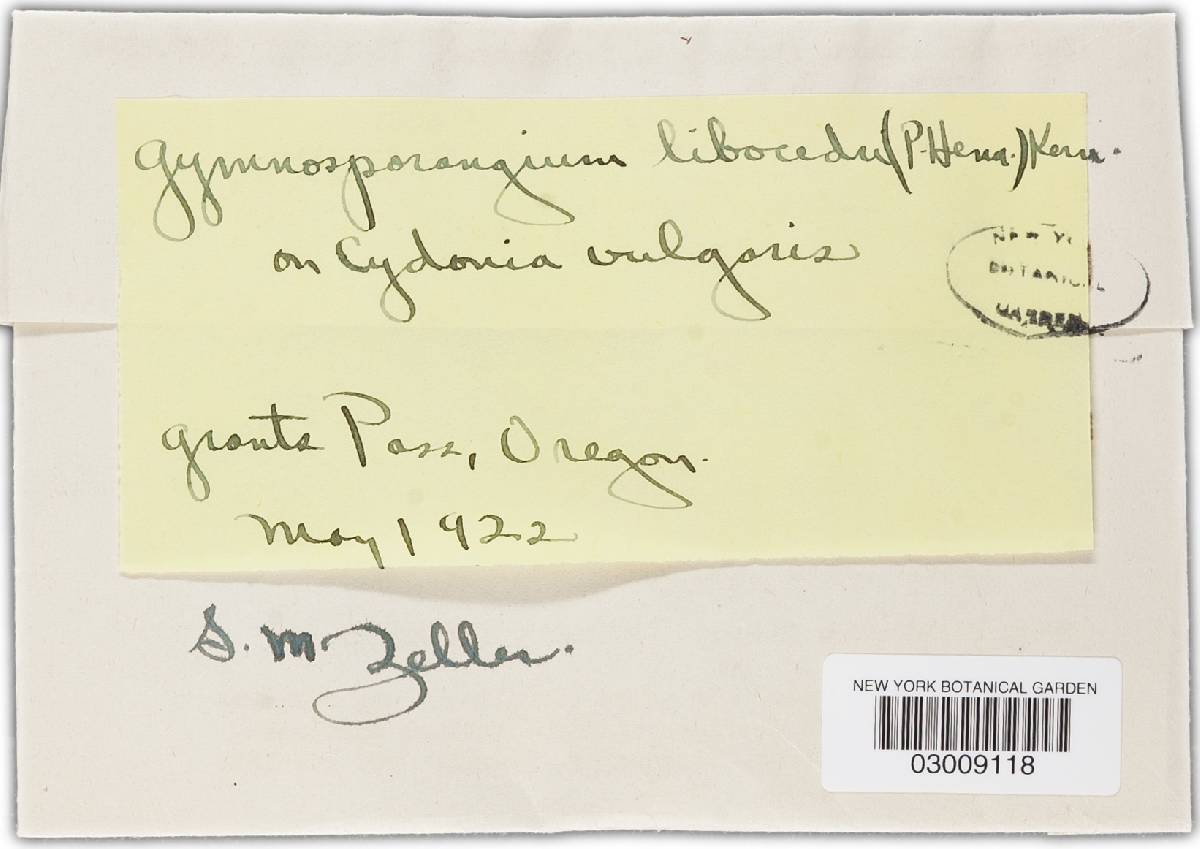 Gymnosporangium libocedri (P. Henn.) Kern.
on Cydonia vulgaris
NEW YO
BOTANICAL
GARDEN
Grants Pass, Oregon.
May 1922
S. M. Zeller.
NEW YORK BOTANICAL GARDEN
03009118